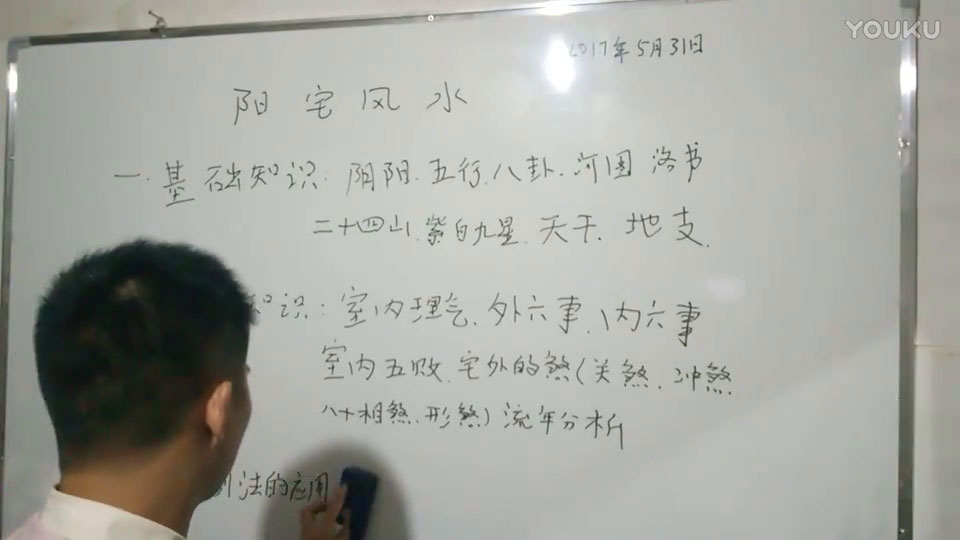 YOUKU
2017年5月31日
阳宅风水
一.基础知识:阴阳.五行.八卦.河图洛书
二十四山.紫白九星.天干.地支.
识:室内理气.外六事.内六事
室内五败.宅外的煞(关煞.冲煞.
八十相煞.形煞)流年分析
法的应用